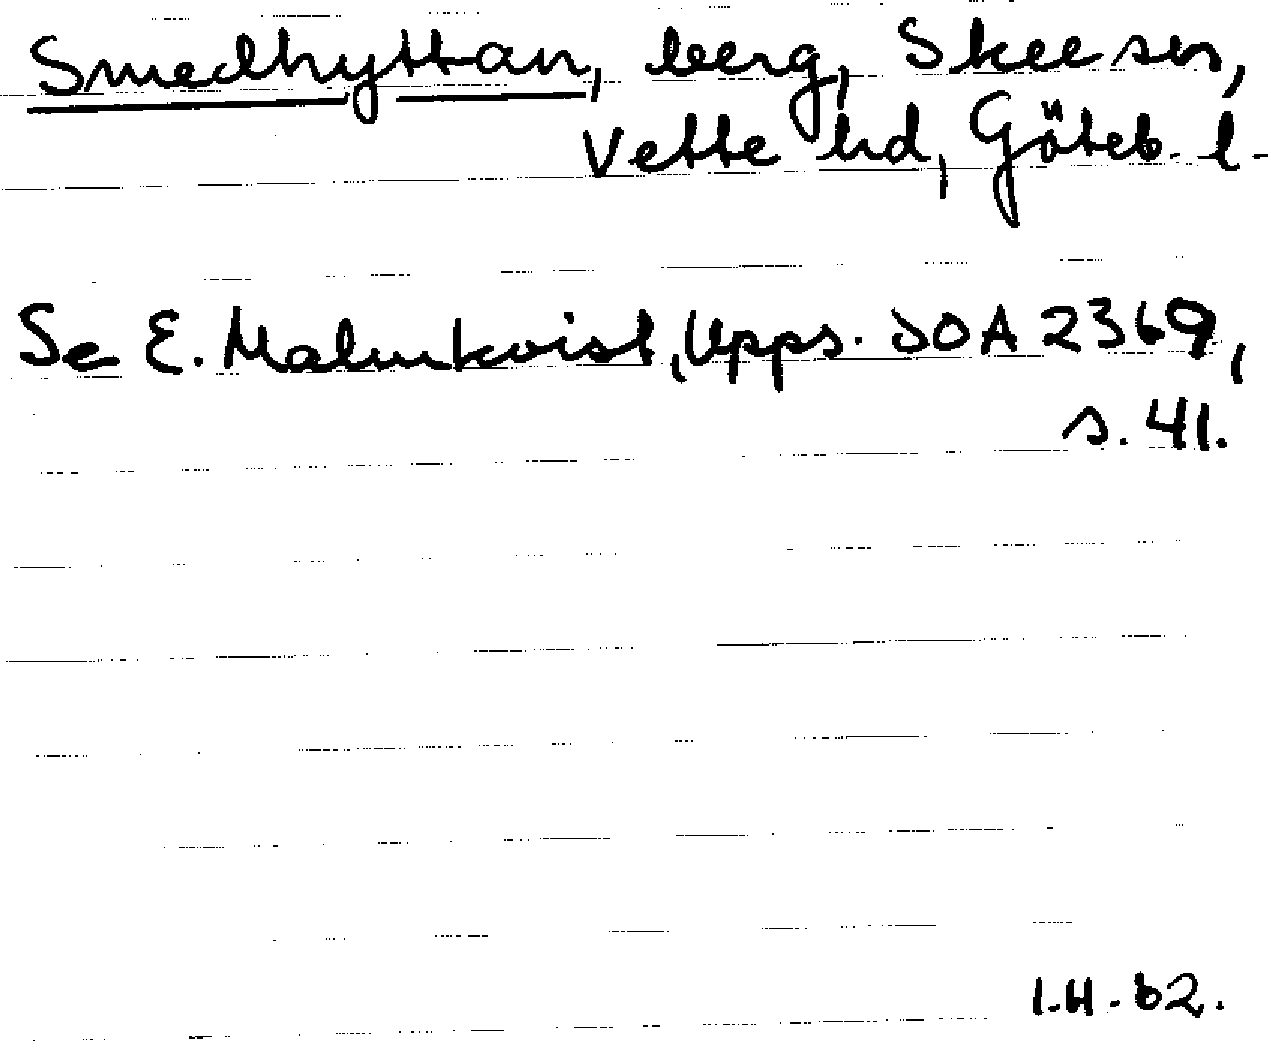 Smedhyttan, berg, Skee sn,
Vette hd, Göteb. l.
Se E. Malmkvist, Upps. DOA 2369,
s. 41.
I.H. 62.